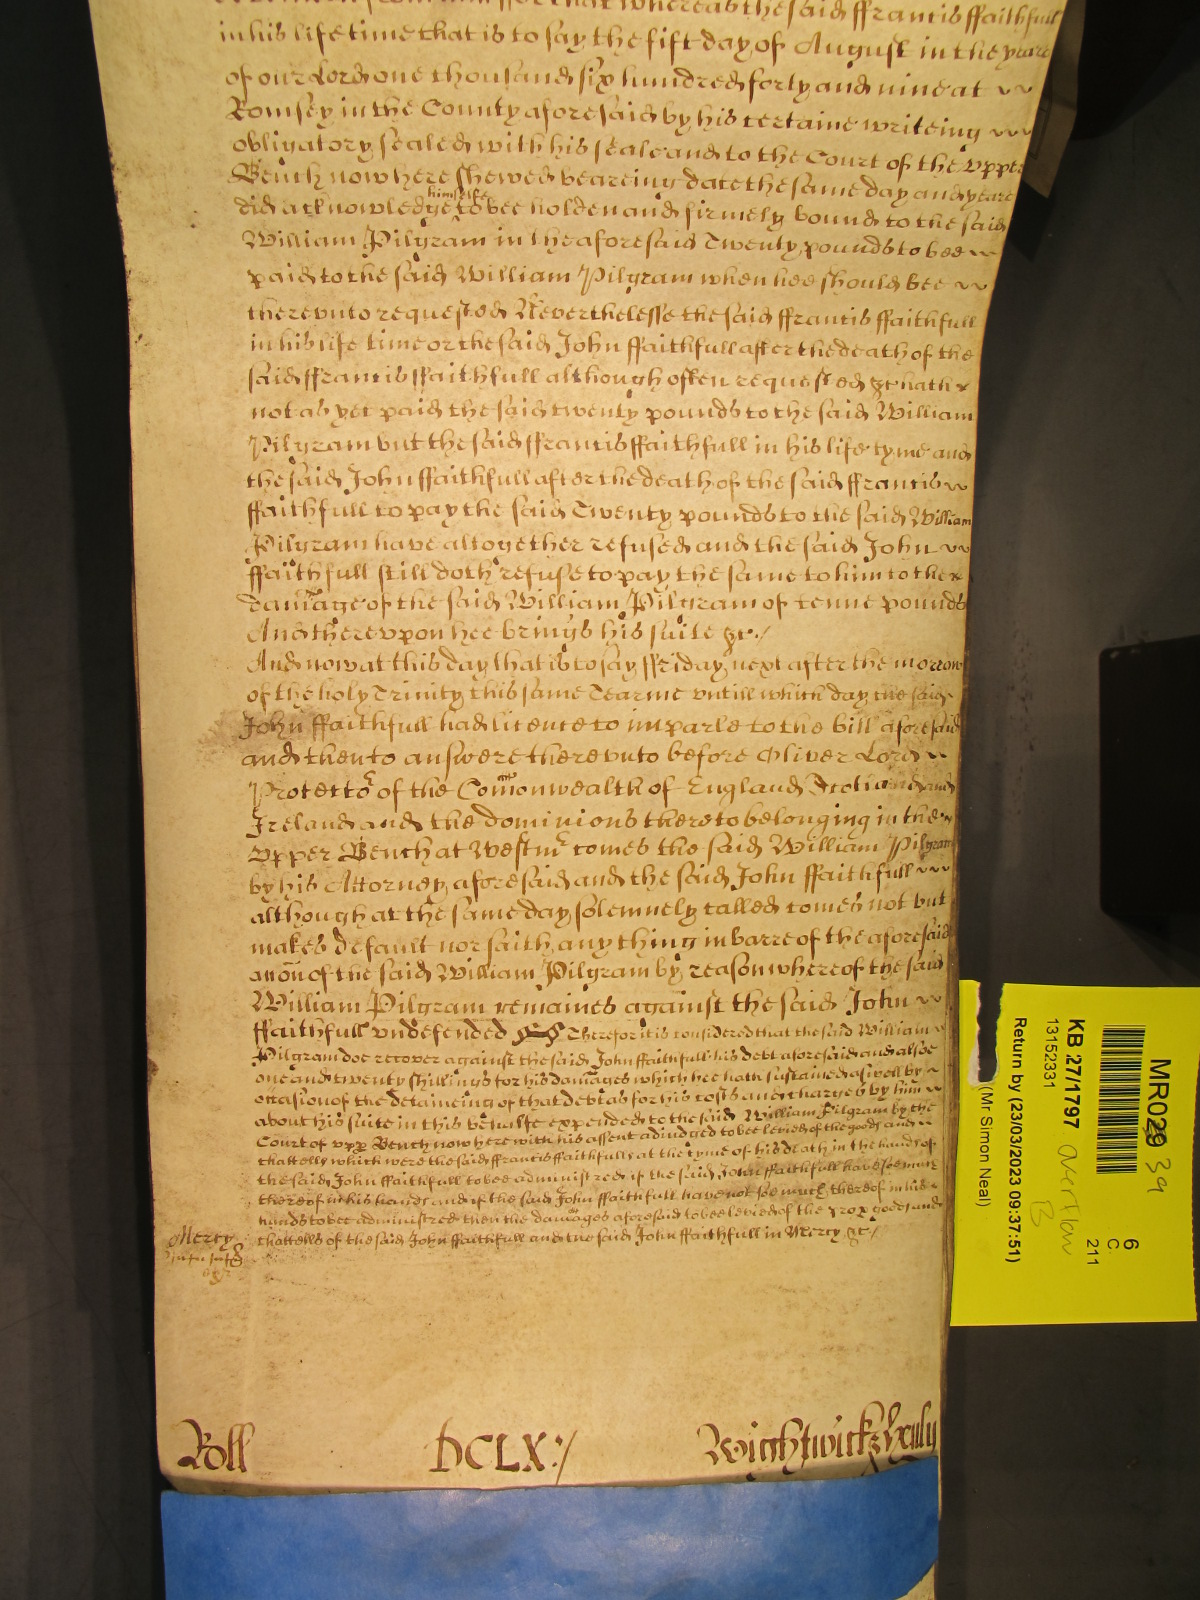 that whereas the said ffrancis ffaithfull
in his life time that is to say the fift day of August in the yeare
of our Lord one thousand six hundred forty and nine at
Romsey in the County aforesaid by his certaine writeing
obligatory sealed with his seale and to the Court of the vpper
Bench now here shewed beareing date the same day and yeare
did acknowledge himselfe to bee holden and firmely bound to the said
William Pilgram in the aforesaid Twenty pounds to bee
paid to the said William Pilgram when hee should bee
therevnto requested Neverthelesse the said ffrancis ffaithfull
in his life time or the said John ffaithfull after the death of the
said ffrancis ffaithfull although often requested &c hath
not as yet paid the said twenty pounds to the said William
Pilgram but the said ffrancis ffaithfull in his life tyme and
the said John ffaithfull after the death of the said ffrancis
ffaithfull to pay the said Twenty pounds to the said William
Pilgram have altogether refused and the said John
ffaithfull still doth refuse to pay the same to him to the
damage of the said William Pilgram of tenne pounds
And therevpon hee brings his suite &c./
And now at this day that is to say ffriday next after the morrow
of the holy Trinity this same Tearme vntill which day the said
John ffaithfull had licence to imparle to the bill aforesaid
and then to answere therevnto before Oliver Lord
Protector of the Comonwealth of England Scotland and
Ireland and the dominions thereto belonging in the
Vpper Bench at Westmr comes the said William Pilgram
by his Attorney aforesaid and the said John ffaithfull
although at the same day solemnely called comes not but
makes default nor saith any thing in barre of the aforesaid
accon of the said William Pilgram by reason whereof the said
William Pilgram remaines against the said John
ffaithfull vndefended Therefore it is considered that the said William
Pilgram doe recover against the said John ffaithfull his debt aforesaid and alsoe
one and twenty shillings for his damages which hee hath sustained aswell by
occasion of the detaineing of that debt as for his costs and charges by him
about his suite in this behalfe expended to the said William Pilgram by the
Court of vpp Bench now here with his assent adiudged to bee levied of the goods and
chattells which were the said ffrancis ffaithfulls at the tyme of his death in the hands of
the said John ffaithfull to bee administred if the said John ffaithfull have soe much
thereof in his hands and if the said John ffaithfull have not soe much thereof in his
hands to bee administred then the damages aforesaid to bee levied of the prop goods and
chattells of the said John ffaithfull and the said John ffaithfull in Mercy &c./
Mercy
Roll DCLX:/ Wightwick
MR029 39
6
C.
211
KB 27/1797 overflow
B
13152331
Return by (23/03/2023 09:37:51)
(Mr Simon Neal)